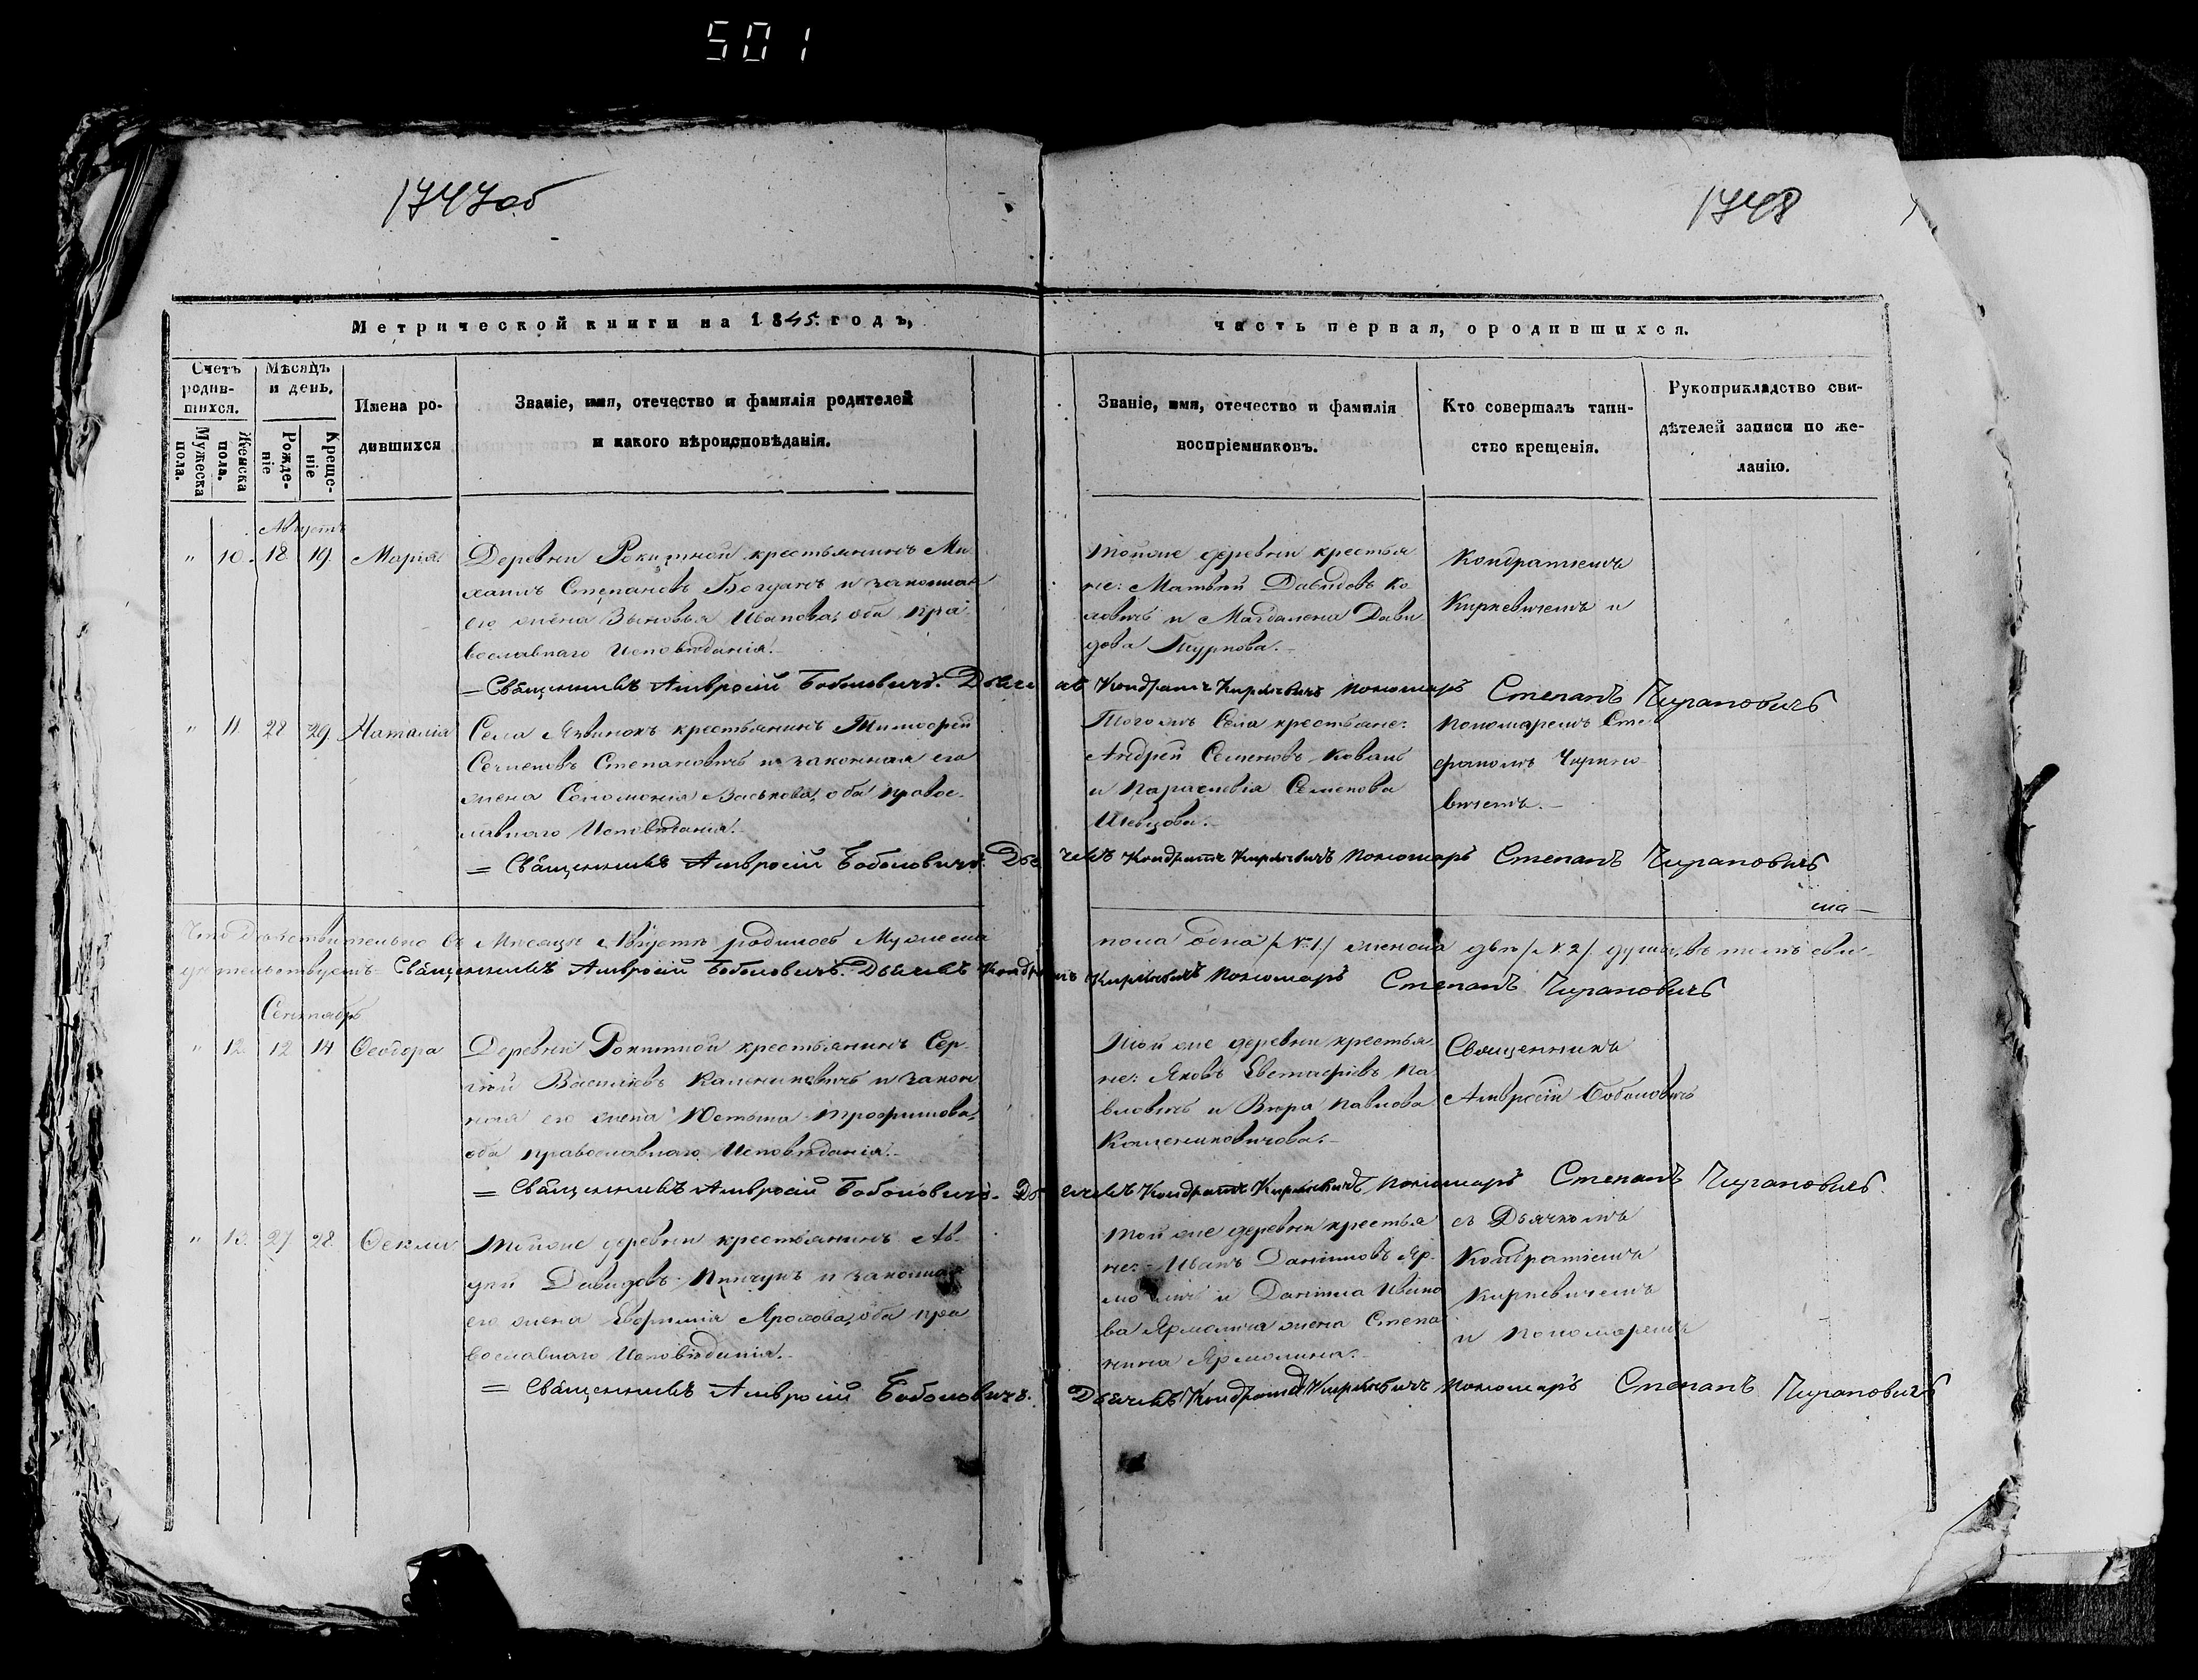 501
1747об
1748
Метрической книги на 1845. годъ,
часть первая, ородившихся.
Счетъ родив-шихся.
Мужеска пола.
Женска пола.
Мѣсяцъ и день.
Рожде-ніе
Креще-ніе
Имена ро-
дившихся
Званіе, имя, отечество и фамилія родителей
и какого вѣроисповѣданія.
Званіе, имя, отечество и фамилія
воспріемниковъ.
Кто совершалъ таин-
ство крещенія.
Рукоприкладство сви-
дѣтелей записи по же-
ланію.
Августъ
" 10. 18. 19. Марія.
Деревни Рокитной крестьянинъ Ми-
хаилъ Степановъ Богданъ и законная
его жена Зѣновья Иванова, оба пра-
вославнаго Исповѣданія.
Тойже деревни крестья
не: Матвѣй Давидовъ Ко
ловичъ и Магдалена Дави
дова
Кондратіемъ
Киркевичемъ и
— Священникъ Амвросій Боболовичъ. Дьячекъ Кондратъ Киркевичъ Пономаръ Степанъ Чирановичъ
" 11. 28 29. Наталія
Села крестьянинъ Тимофей
Семеновъ Степановичъ и законная его
жена Соломонія Васькова, оба правос-
лавнаго Исповѣданія.
Тогожъ Села крестьяне:
Андрей Семеновъ Коваль
и Параскевія Семенова
Шевцова.
Пономаремъ Сте
фаномъ Чирано-
вичемъ.
= Священникъ Амвросій Боболовичъ. Дьячекъ Кондратъ Киркевичъ Пономаръ Степанъ Чирановичъ
Что дѣйствительно въ Мѣсяцѣ Августѣ родилось Мужеска
пола одна /№1/ женска двѣ /№2/. душа, въ томъ сви-
дѣтельствуемъ Священникъ Амвросій Боболовичъ. Дьячекъ Кондратъ Киркевичъ Пономаръ Степанъ Чирановичъ
Сентябрь
" 12. 12 14 Ѳеодора
Деревни Рокитной крестьянинъ Сер-
гій Васильевъ Калениковичъ и закон
ная его жена Трофимова,
оба православнаго Исповѣданія.
Той же деревни крестья-
не: Яковъ Евстафіевъ Па-
вловичъ и Вѣра Павлова
Калениковичова.
Священникъ
Амвросій Боболовичъ
= Священникъ Амвросій Боболовичъ. Дьячекъ Кондратъ Киркевичъ Пономаръ Степанъ Чирановичъ.
" 13. 27 28. Ѳекла
Тойже деревни крестьянинъ Ав-
дей Давидовъ Пинчукъ и законная
его жена Евфимія оба пра
вославнаго Исповѣданія.
Той же деревни крестья
не: Иванъ Даниловъ Яр-
и Данила Ивано
ва Ярмолича жена Степа
нида
съ Дьячкомъ
Кондратіемъ
Киркевичемъ
и Пономаремъ
= Священникъ Амвросій Боболовичъ. Дьячекъ Кондратъ Киркевичъ Пономаръ Степанъ Чирановичъ